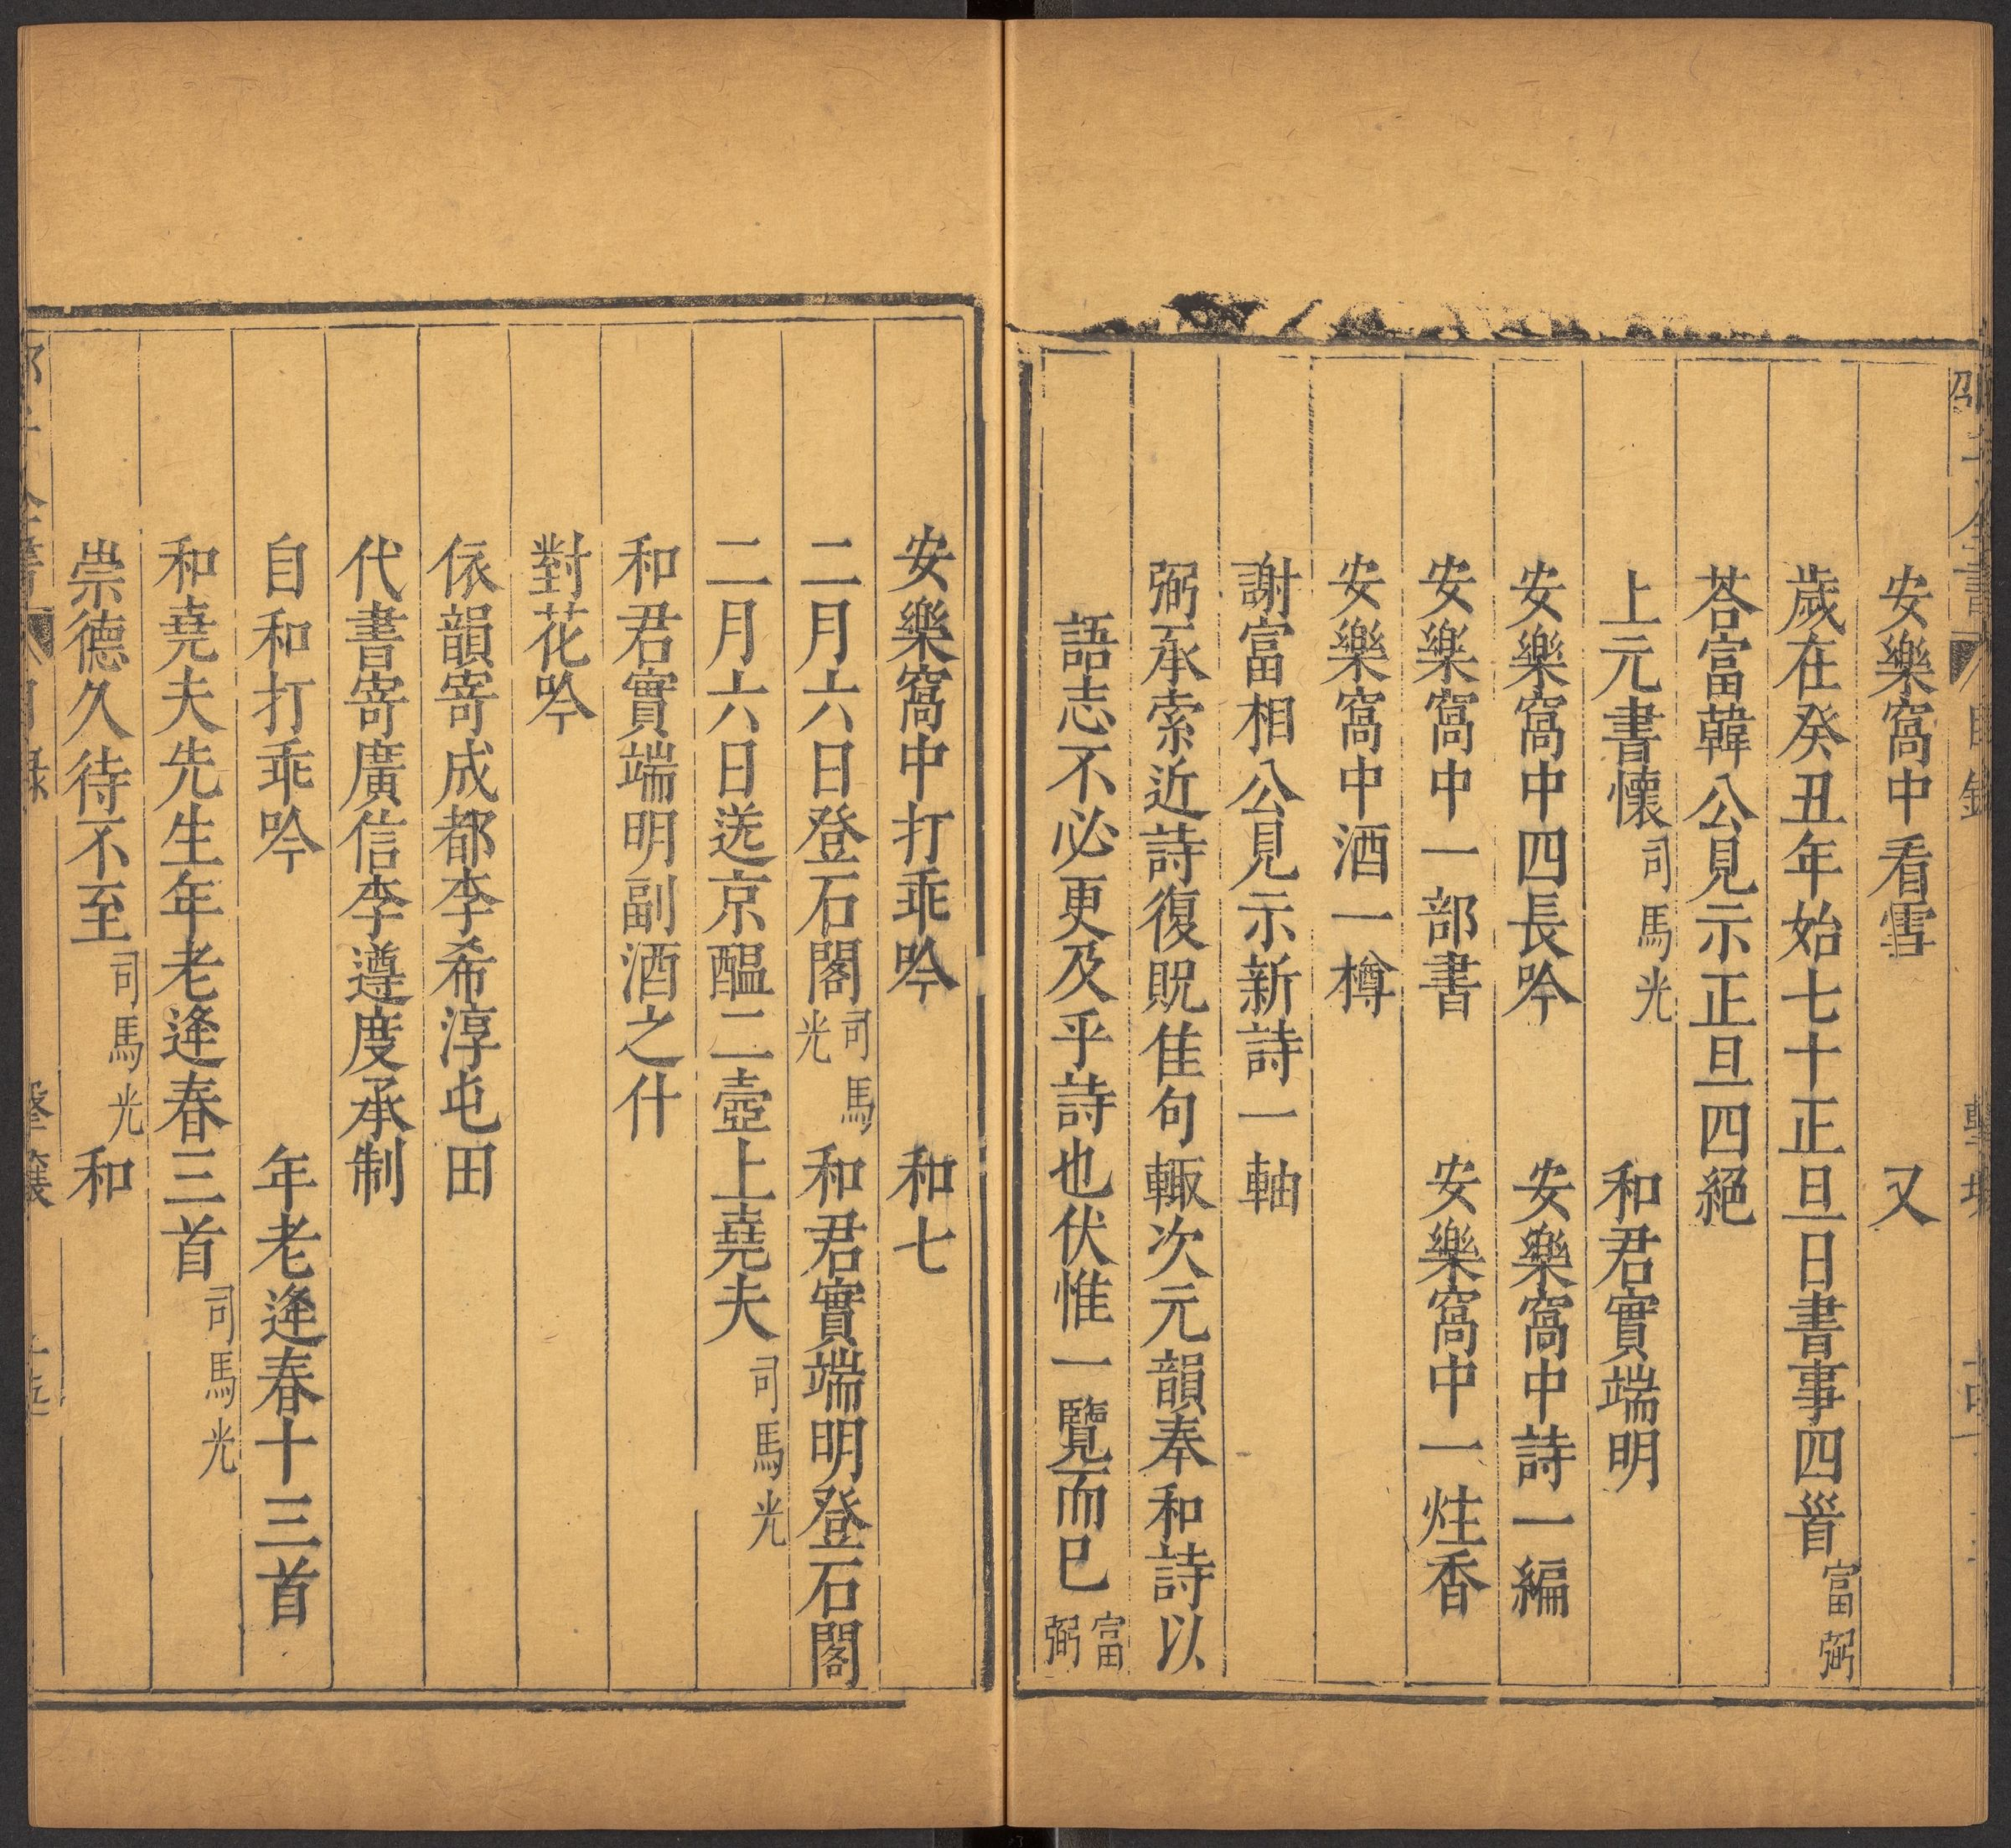 安樂窩中看雪　又
歲在癸丑年始七十正旦日書事四首富弼
荅富韓公見示正旦四絕
上元書懷司馬光　和君實端明
安樂窩中四長吟　安樂窩中詩一編
安樂窩中一部書　安樂窩中一炷香
安樂窩中酒一樽
謝富相公見示新詩一軸
弼承索近詩復貺佳句輙次元韻奉和詩以
語志不必更及乎詩也伏惟一覽而已富弼
安樂窩中打乖吟　和七
二月六日登石閣司馬光　和君實端明登石閣
二月六日送京醞二壺上堯夫司馬光
和君實端明副酒之什
對花吟
依韻寄成都李希淳屯田
代書寄廣信李遵度承制
自和打乖吟　年老逢春十三首
和堯夫先生年老逢春三首司馬光
崇德久待不至司馬光　和